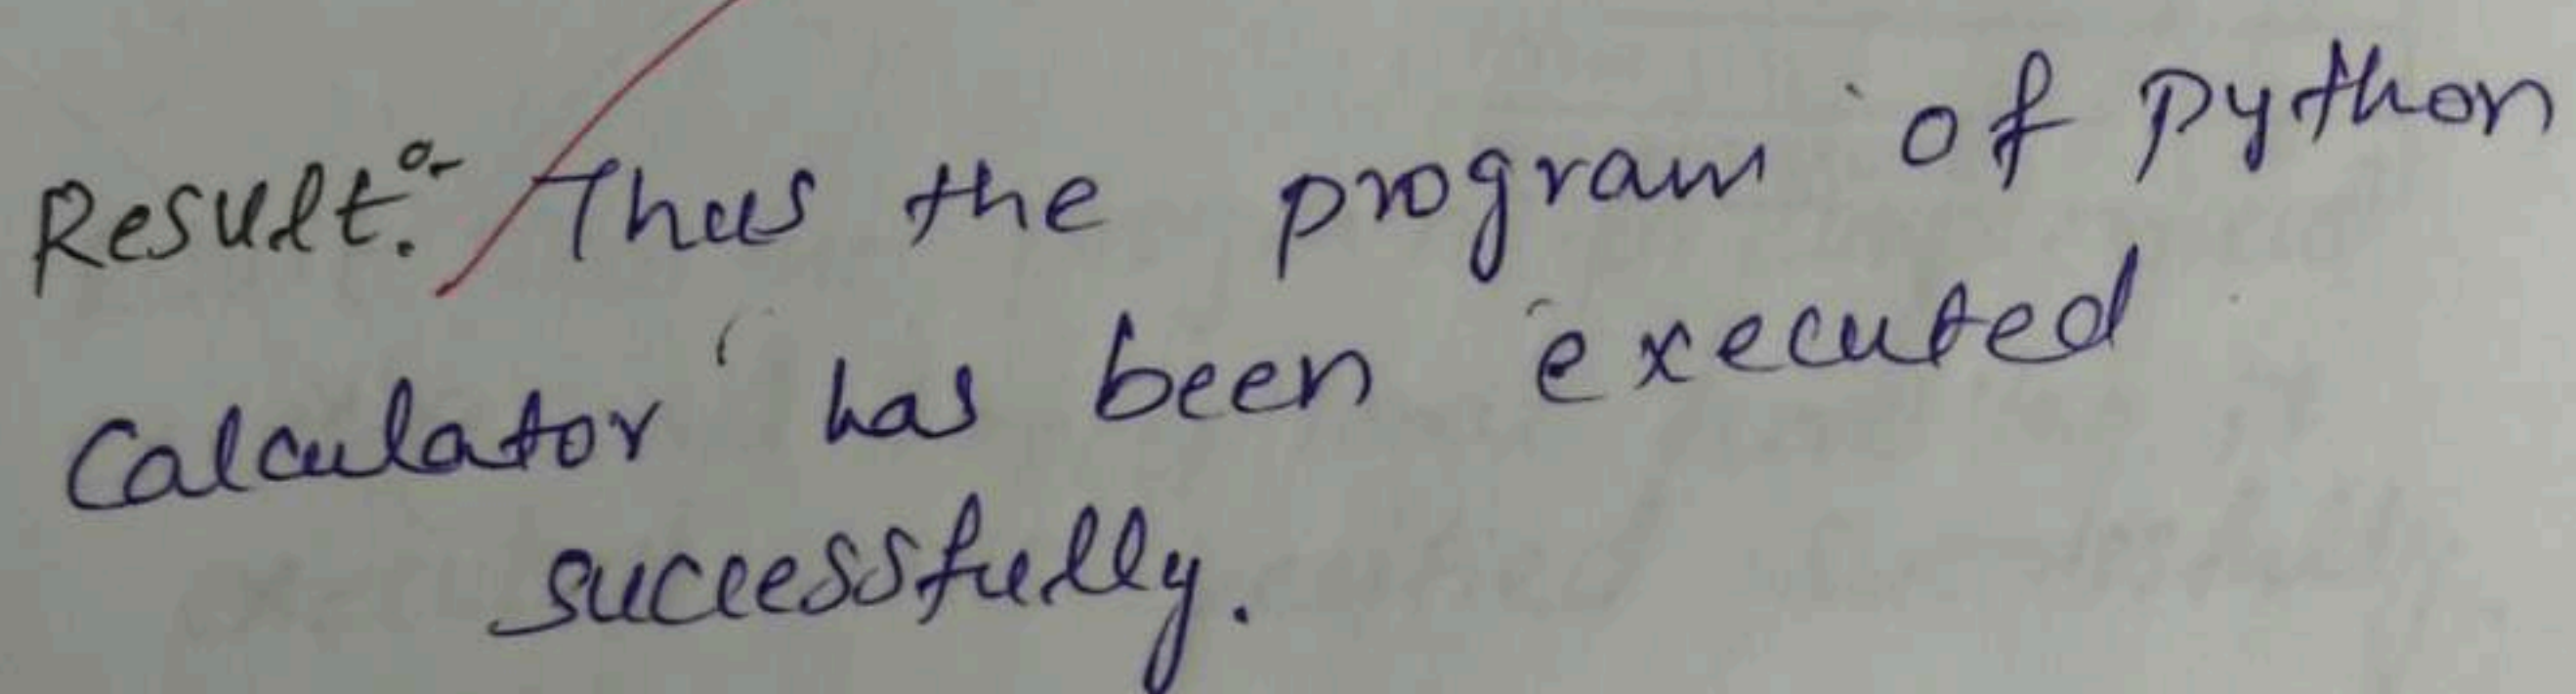 Result:- Thus the program of Python
Calculator has been executed
successfully.